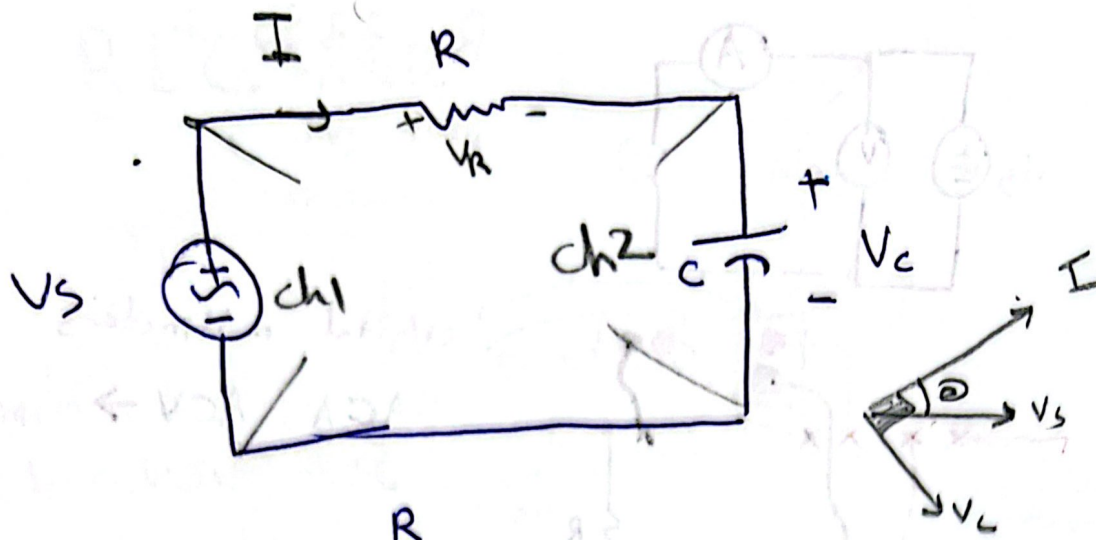 I
R
+ -
VR
Vs
+
-
ch1
ch2
C
+
Vc
-
I
Vs
Vc
R